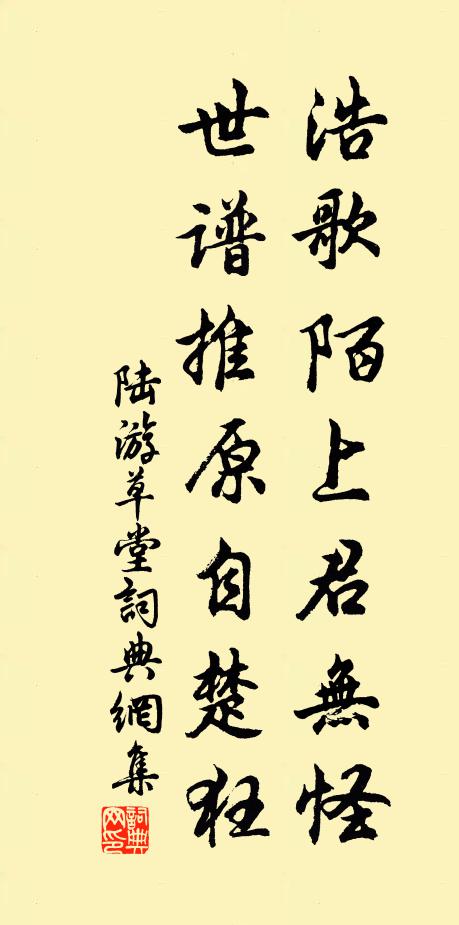 浩歌陌上君無怪
世谱推原自楚狂
陆游草堂詞典網集
詞典网印